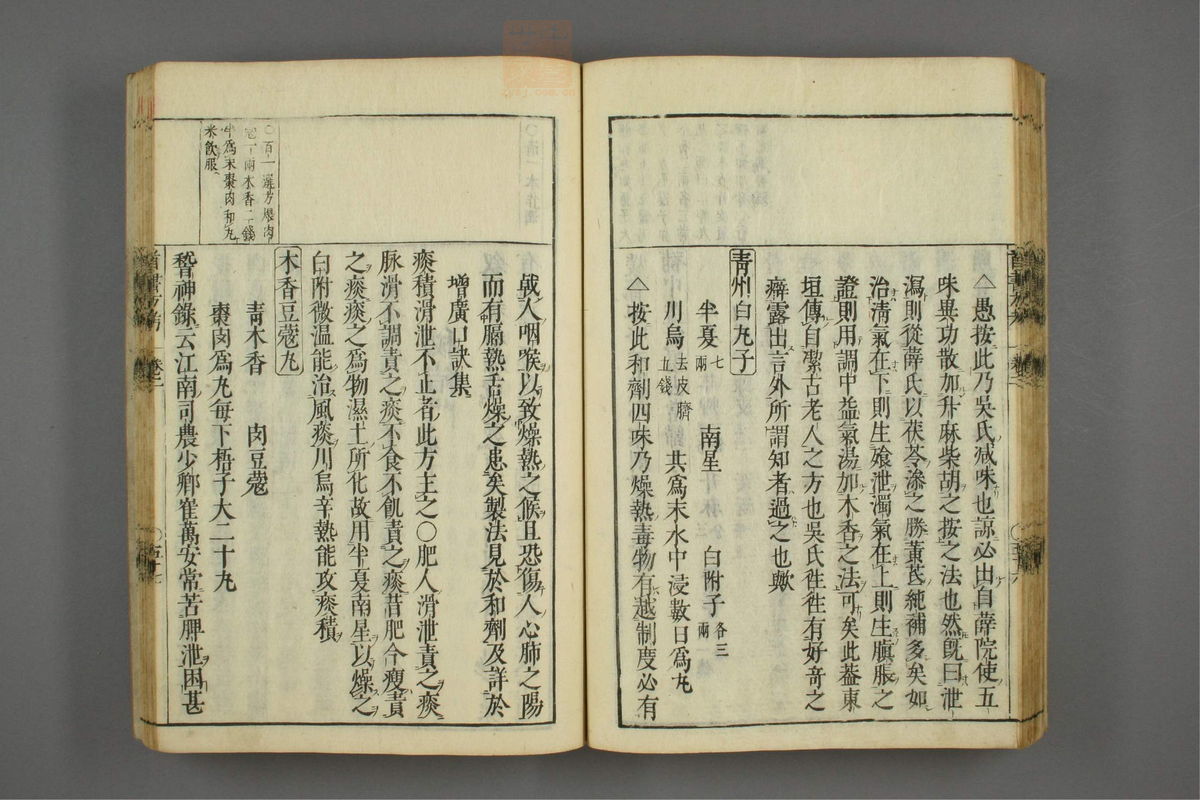 △愚按此乃吳氏減味也諒必出自薛院使五
味異功散加升麻柴胡之按之法也然既曰泄
瀉則從薛氏以茯苓滲之勝黃芪純補多矣如
治清氣在下則生飧泄濁氣在上則生䐜脹之
證則用調中益氣湯加木香之法可矣此蓋東
垣傳自潔古老人之方也吳氏徃徃有好奇之
癖露出言外所謂知者過之也歟
青州白丸子
半夏七兩 南星 白附子各三兩
川烏去皮臍五錢 共為末水中浸數日為丸
△按此和劑四味乃燥熱毒物有越制度必有
戟人咽喉以致燥熱之候且恐傷人心肺之陽
而有膈熱舌燥之患矣製法見於和劑及詳於
增廣口訣集
痰積滑泄不止者此方主之〇肥人滑泄責之痰
脉滑不調責之痰不食不飢責之痰昔肥今瘦責
之痰痰之為物濕土所化故用半夏南星以燥之
白附微温能治風痰川烏辛熱能攻痰積
〇百一選方煨肉
蔻一兩木香二錢
半為末棗肉和丸
米飲服
木香豆蔻丸
青木香 肉豆蔻
棗肉為丸每下梧子大二十丸
稽神錄云江南司農少卿崔萬安常苦脾泄困甚